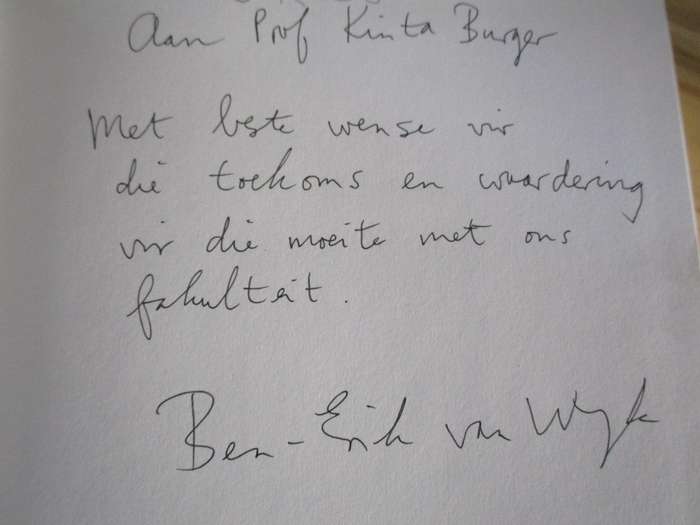 Aan Prof Kinta Burger
Met beste wense vir
die toekoms en waardering
vir die moeite met ons
fakulteit.
Ben-Erik van Wyk